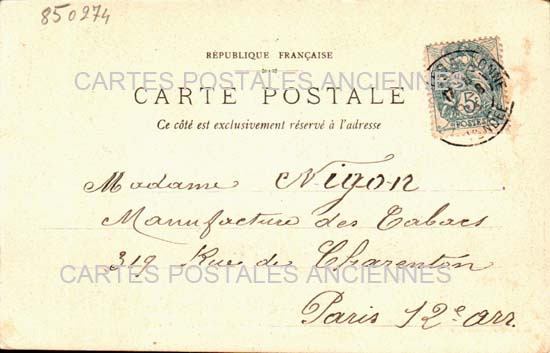 850274
RÉPUBLIQUE FRANÇAISE
CARTES POSTALES ANCIENNES
CARTE POSTALE
Ce côté est exclusivement réservé à l'adresse
5c
POSTES
Madame Nigon
Manufacture des Tabacs
319 Rue de Charenton
CARTES POSTALES ANCIENNES
Paris 12e arr.